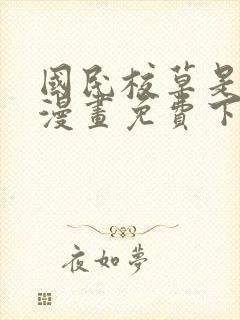 國民校草是
漫畫免費下
夜如夢